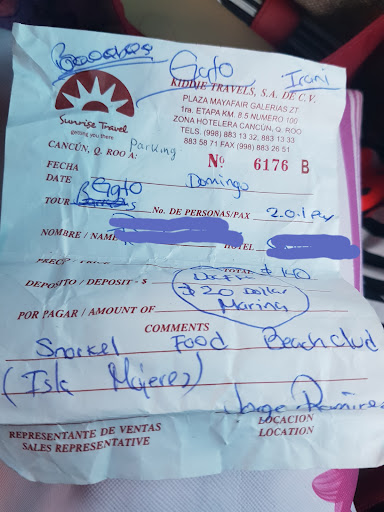 Gato
Irani
KIDDIE TRAVELS, S.A. DE C.V.
PLAZA MAYAFAIR GALERIAS Z7.
1ra. ETAPA KM. 8.5 NUMERO 100
ZONA HOTELERA CANCÚN, Q. ROO
TELS. (998) 883 13 32, 883 13 33
883 58 71 FAX (998) 883 26 51
Sunrise Travel
getting you there
CANCÚN, Q. ROO A:
Nº 6176 B
FECHA
DATE Domingo
Gato
TOUR No. DE PERSONAS/PAX 2.0.1 Pax
NOMBRE / NAME HOTEL
TOTAL
DEPOSITO / DEPOSIT - $
$20 Dollar
Marina
POR PAGAR / AMOUNT OF
COMMENTS
Snorkel Food Beach clud
(Isla Mujeres)
Jorge Ramirez
REPRESENTANTE DE VENTAS
SALES REPRESENTATIVE
LOCACION
LOCATION